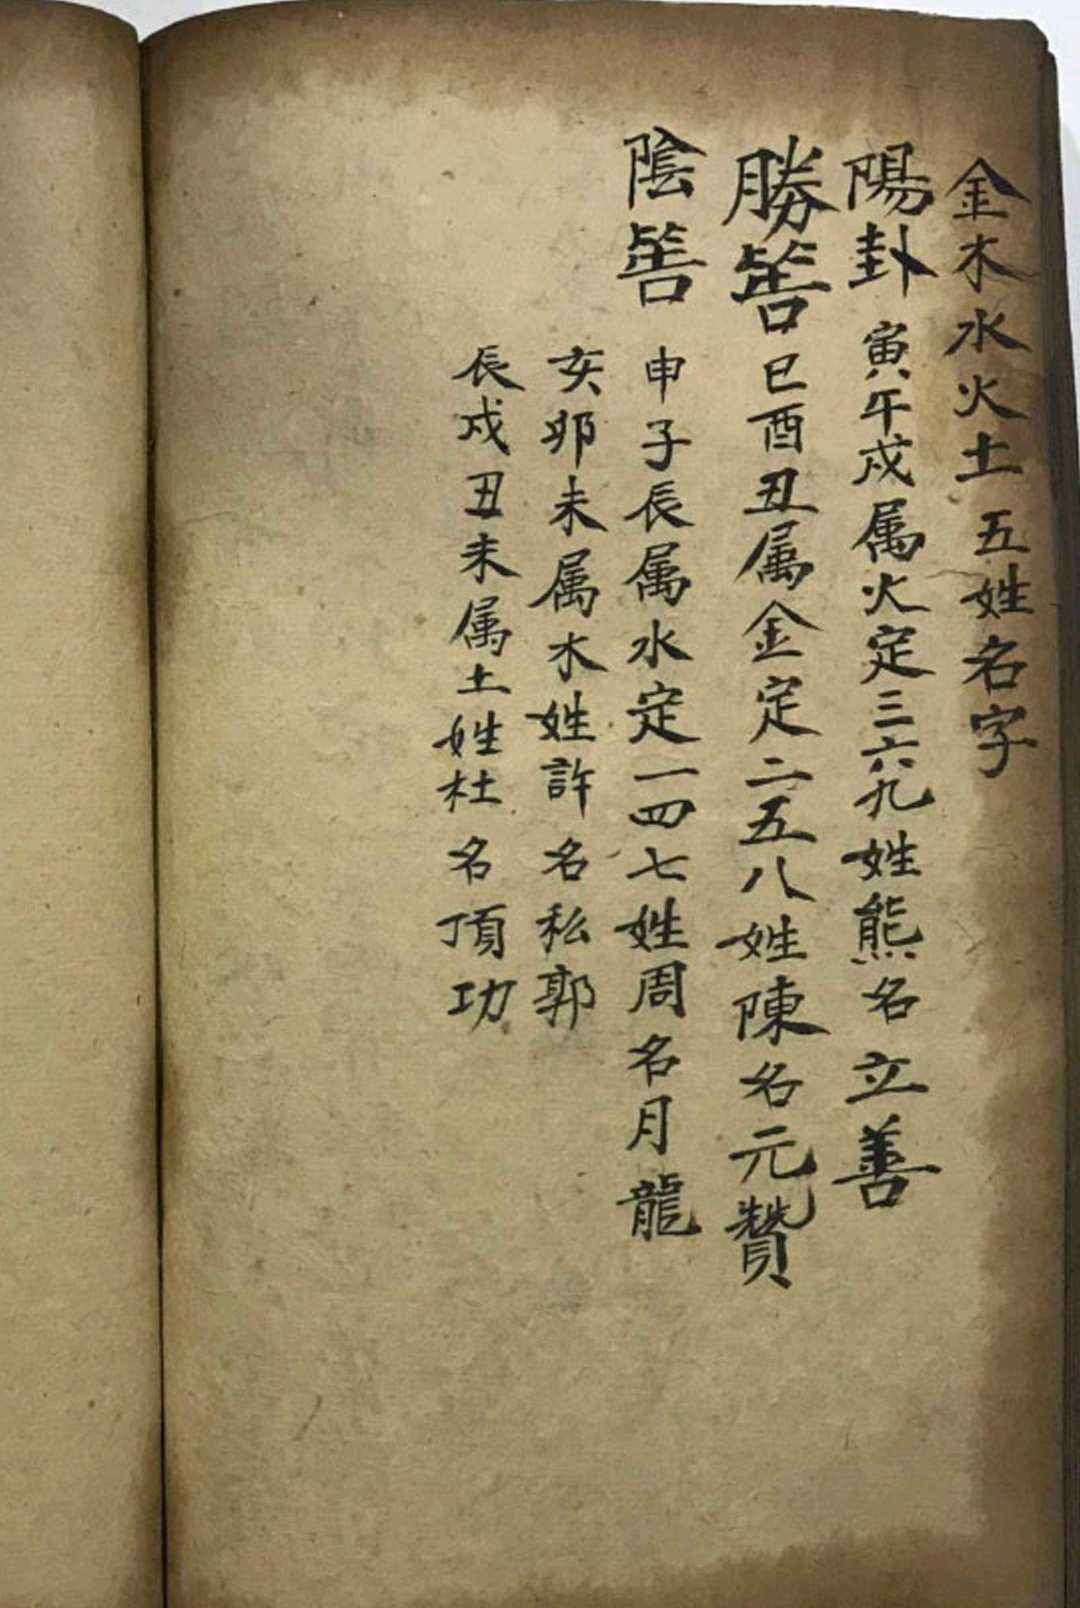 金木水火土五姓名字
陽卦 寅午戌属火定三六九姓熊名立善
勝筶 巳酉丑属金定二五八姓陳名元贊
陰筶 申子辰属水定一四七姓周名月龍
亥卯未属木姓許名私郭
辰戌丑未属土姓杜名頂功